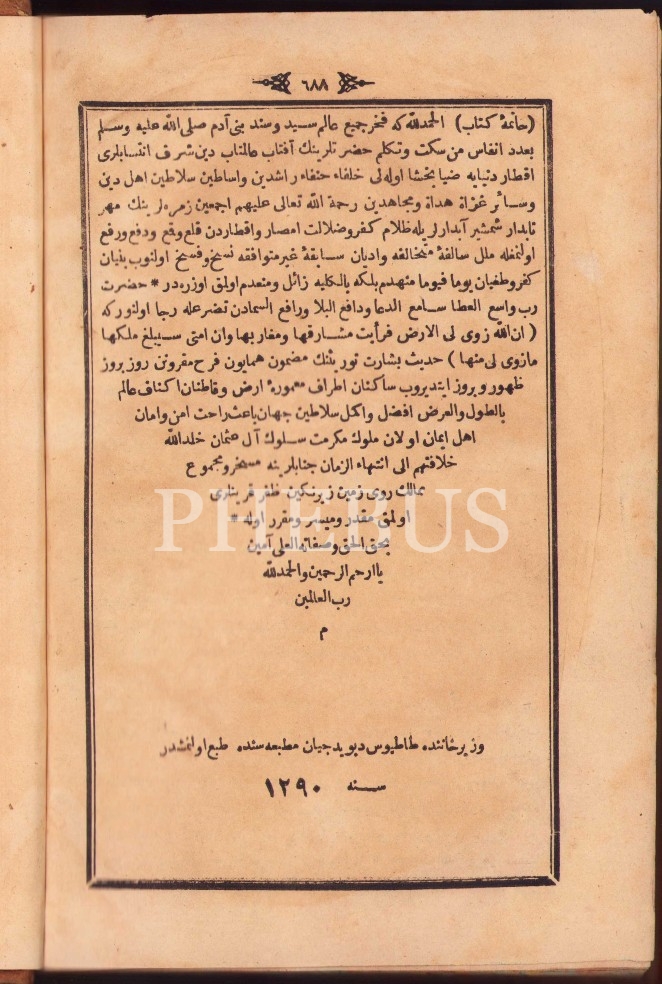 ٦٨٨
(خاتمهٔ كتاب) الحمدلله كه فخر جميع عالم سيد وسند بنى آدم صلى الله عليه وسلم
بعدد انفاس من سكت وتكلم حضرتلرينك آفتاب عالمتاب دين شرف انتسابلرى
اقطار دنيايه ضيا بخشا اوله لى خلفاء حنفاء راشدين واساطين سلاطين اهل دين
وسائر غزاة هداة ومجاهدين رحمة الله تعالى عليهم اجمعين زمره لرينك مهر
تابدار شمشير آبدارلريله ظلام كفر وضلالت امصار واقطاردن قلع وقع ودفع ورفع
اولنمغله ملل سالفهٔ متخالفه واديان سابقهٔ غير متوافقه نسخ وفسخ اولنوب بنيان
كفر وطغيان يوما فيوما منهدم بلكه بالكليه زائل ومنعدم اولمق اوزره در * حضرت
رب واسع العطا سامع الدعا ودافع البلا ورافع السمادن تضرعله رجا اولنور كه
( ان الله زوى لى الارض فرأيت مشارقها ومغاربها وان امتى سيبلغ ملكها
مازوى لى منها ) حديث بشارت توريثنك مضمون همايون فرح مقرونن روز بروز
ظهور وبروز ايتديروب ساكنان اطراف معمورهٔ ارض وقاطنان اكناف عالم
بالطول والعرض افضل واكمل سلاطين جهان باعث راحت امن وامان
اهل ايمان اولان ملوك مكرمت سلوك آل عثمان خلد الله
خلافتهم الى انتهاء الزمان جنابلرينه مسخر ومجموع
ممالك روى زمين زير نكين ظفر قرينلرى
اولمق مقدر وميسر ومقرر اوله *
بحق الحق وصفاته العلى آمين
يا ارحم الرحمين والحمدلله
رب العالمين
م
وزير خاننده طاطيوس ديويدجيان مطبعه سنده طبع اولنمشدر
سنه ١٢٩٠
PHEBUS